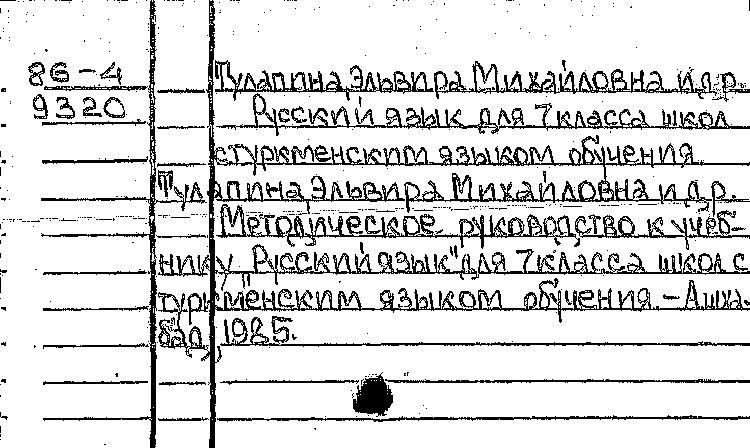 86-4
9320
Тулапина, Эльвира Михайловна и др.
Русский язык для 7 класса школ
с туркменским языком обучения.
Тулапина, Эльвира Михайловна и др.
Методическое руководство к учеб-
нику "Русский язык" для 7 класса школ с
туркменским языком обучения. - Ашха-
бад, 1985.